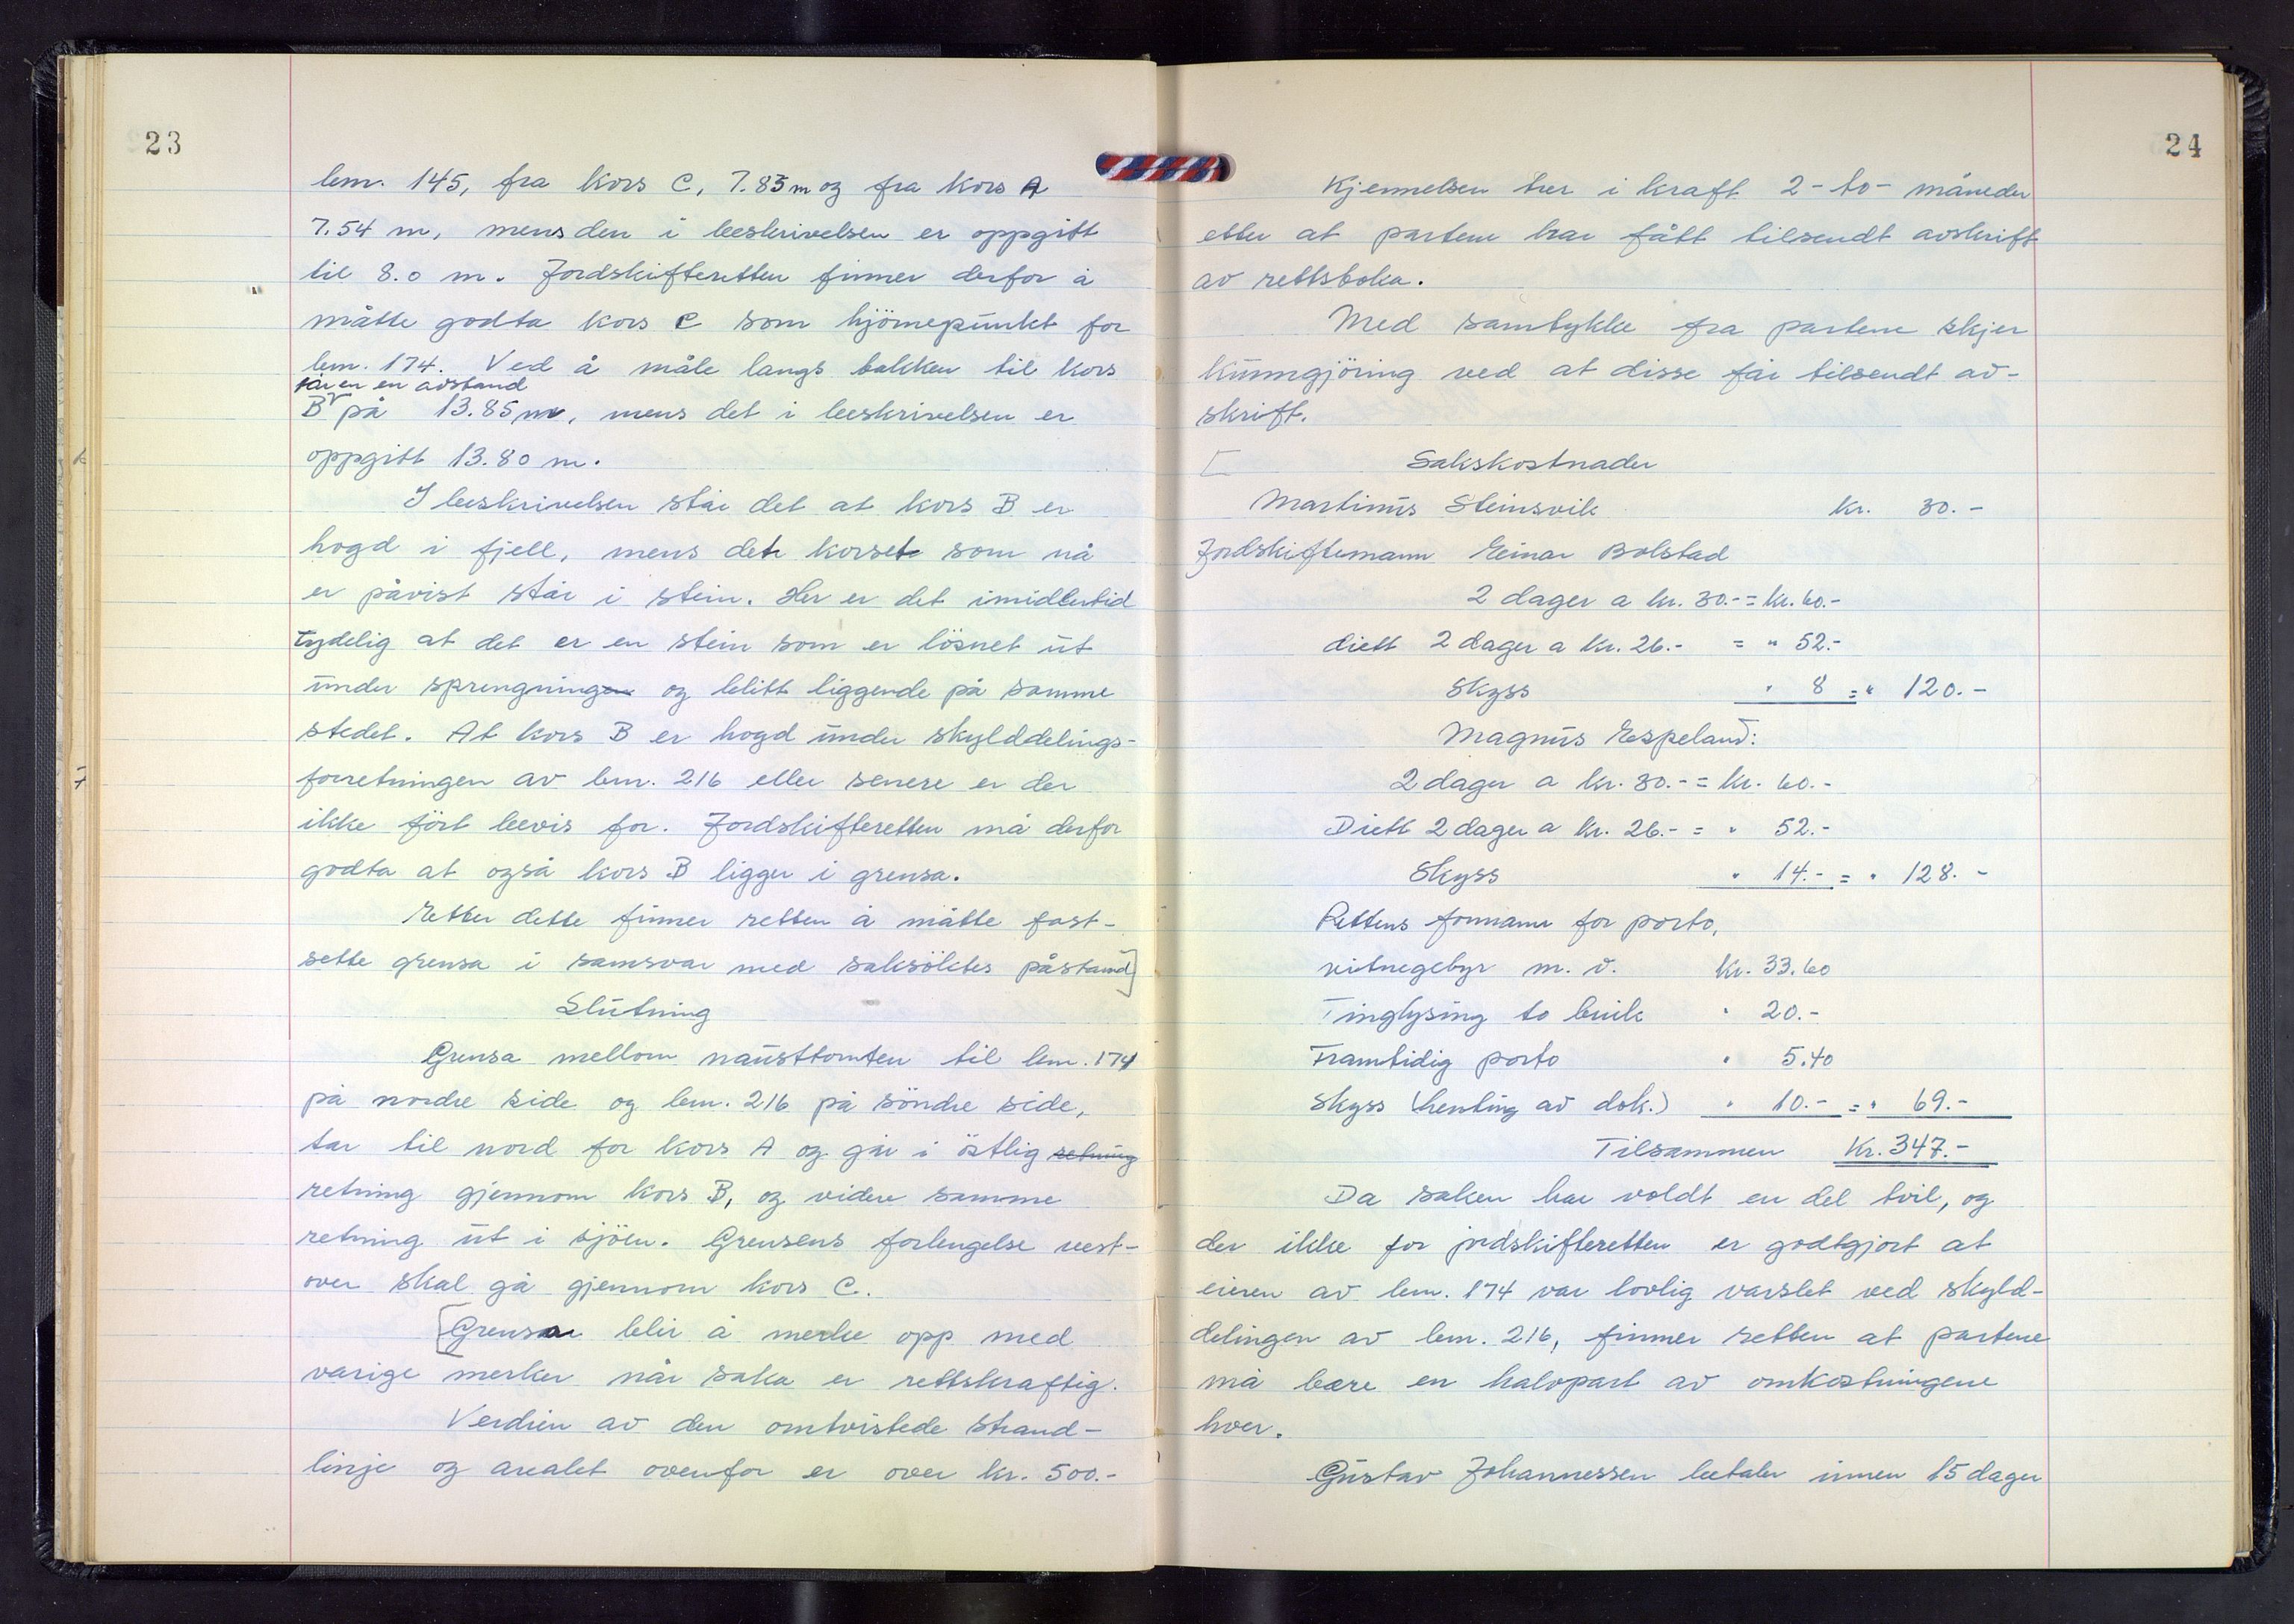 23
bnr. 145, fra kors C, 7.83 m og fra kors A
7.54 m, mens den i beskrivelsen er oppgitt
til 8.0 m. Jordskifteretten finner derfor å
måtte godta kors C som hjörnepunkt for
bnr. 174. Ved å måle langs bakken til kors
får en en avstand
B på 13.85 m, mens det i beskrivelsen er
oppgitt 13.80 m.
I beskrivelsen står det at kors B er
hogd i fjell, mens det korset som nå
er påvist står i stein. Her er det imidlertid
tydelig at det er en stein som er lösnet ut
under sprengningen og blitt liggende på samme
stedet. At kors B er hogd under skylddelings-
forretningen av bnr. 216 eller senere er der
ikke fört bevis for. Jordskifteretten må derfor
godta at også kors B ligger i grensa.
Etter dette finner retten å måtte fast-
sette grensa i samsvar med saksöktes påstand]
Slutning
Grensa mellom nausttomten til bnr. 174
på nordre side og bnr. 216 på söndre side,
tar til nord for kors A og går i östlig retning
retning gjennom kors B, og videre samme
retning ut i sjöen. Grensens forlengelse vest-
over skal gå gjennom kors C.
[Grensa blir å merke opp med
varige merker når saka er rettskraftig.
Verdien av den omtvistede strand-
linje og arealet ovenfor er over kr. 500.-
24
Kjennelsen trer i kraft 2-to- måneder
etter at partene har fått tilsendt avskrift
av rettsboka.
Med samtykke fra partene skjer
kunngjöring ved at disse får tilsendt av-
skrift.
[ Sakskostnader
Martinus Steinsvik Kr. 30.-
Jordskiftemann Einar Bolstad
2 dager a kr. 30.- = kr. 60.-
diett 2 dager a kr. 26.- = " 52.-
Skyss " 8 = " 120.-
Magnus Espeland:
2 dager a kr. 30.- = kr. 60.-
Diett 2 dager a kr. 26.- = " 52.-
Skyss " 14.- = " 128.-
Rettens formann for porto,
vitnegebyr m. v. kr. 33.60
Tinglysing to bruk " 20.-
Framtidig porto " 5.40
Skyss (henting av dok.) " 10.- = " 69.-
Tilsammen Kr. 347.-
Da saken har voldt en del tvil, og
der ikke for jordskifteretten er godtgjort at
eieren av bnr. 174 var lovlig varslet ved skyld-
delingen av bnr. 216, finner retten at partene
må bære en halvpart av omkostningene
hver.
Gustav Johannessen betaler innen 15 dager